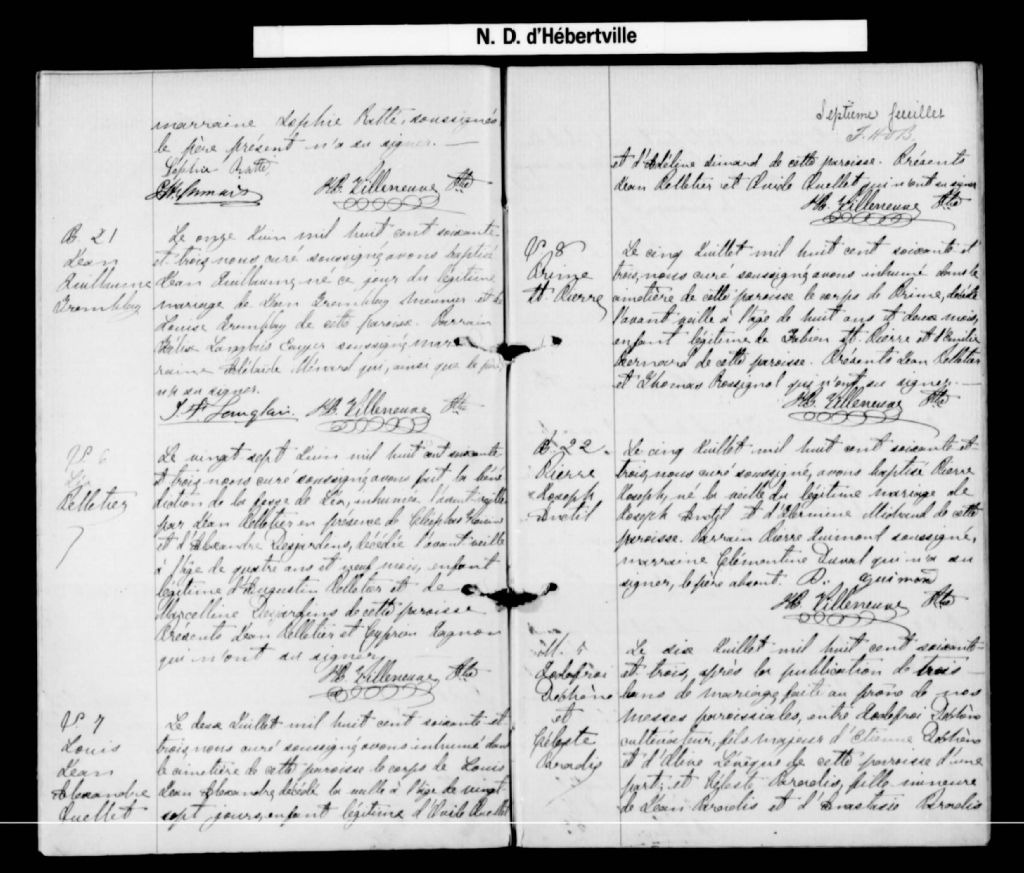 N. D. d'Hébertville
marraine Sophie Ratté, soussignés
le père présent n'a su signer. —
Sophie Ratté
HB. Villeneuve Ptre
B. 21
Jean
Guillaume
Tremblay
Le onze Juin mil huit cent soixante
et trois, nous curé soussigné, avons baptisé
Jean Guillaume, né ce jour du légitime
mariage de Jean Tremblay meunier et de
Louise Tremblay de cette paroisse. Parrain
soussigné, mar
raine Adelaide Ménard qui, ainsi que le père
n'a su signer.
HB. Villeneuve Ptre
S 6
Pelletier
Le vingt sept Juin mil huit cent soixante
et trois, nous curé soussigné, avons fait la béné
diction de la fosse de Léa, inhumée l'avant veille
par Jean Pelletier en présence de Cléophas
et d'Alexandre Desjardins, décédée l'avant veille
à l'âge de quatre ans et neuf mois, enfant
légitime d'Augustin Pelletier et de
Marcelline Desjardins de cette paroisse
Présents Jean Pelletier et Cyprien Gagnon
qui n'ont su signer
HB. Villeneuve Ptre
S 7
Louis
Jean
Alexandre
Ouellet
Le deux Juillet mil huit cent soixante et
trois, nous curé soussigné avons inhumé dans
le cimetière de cette paroisse le corps de Louis
Jean Alexandre, décédé la veille à l'âge de vingt
sept jours, enfant légitime d'Ovide Ouellet
Septième feuillet
et d'Adéline Simard de cette paroisse. Présents
Jean Pelletier et Ovide Ouellet qui n'ont su signer
HB. Villeneuve Ptre
S 8
Prime
St. Pierre
Le cinq Juillet mil huit cent soixante et
trois, nous curé soussigné, avons inhumé dans le
cimetière de cette paroisse le corps de Prime, décédé
l'avant veille à l'âge de huit ans et deux mois,
enfant légitime de Fabien St. Pierre et d'Emilie
Bernard de cette paroisse. Présents Jean Pelletier
et Thomas Rossignol qui n'ont su signer. —
HB. Villeneuve Ptre
B. 22
Pierre
Joseph
Le cinq Juillet mil huit cent soixante et
trois, nous curé soussigné, avons baptisé Pierre
Joseph, né la veille du légitime mariage de
Joseph et d'Hermine de cette
paroisse. Parrain Pierre Guimond soussigné,
marraine Clémentine Duval qui n'a su
signer, le père absent. P. Guimon
HB. Villeneuve Ptre
M. 5
Godefroi
Dechêne
et
Céleste
Paradis
Le six Juillet mil huit cent soixante
et trois, après la publication de trois
bans de mariage, faite au prône de nos
messes paroissiales, entre Godefroi Dechêne
cultivateur, fils majeur d'Etienne Dechêne
et d'Olive Lévêque de cette paroisse d'une
part; et Céleste Paradis, fille mineure
de Jean Paradis et d'Anastasie Paradis